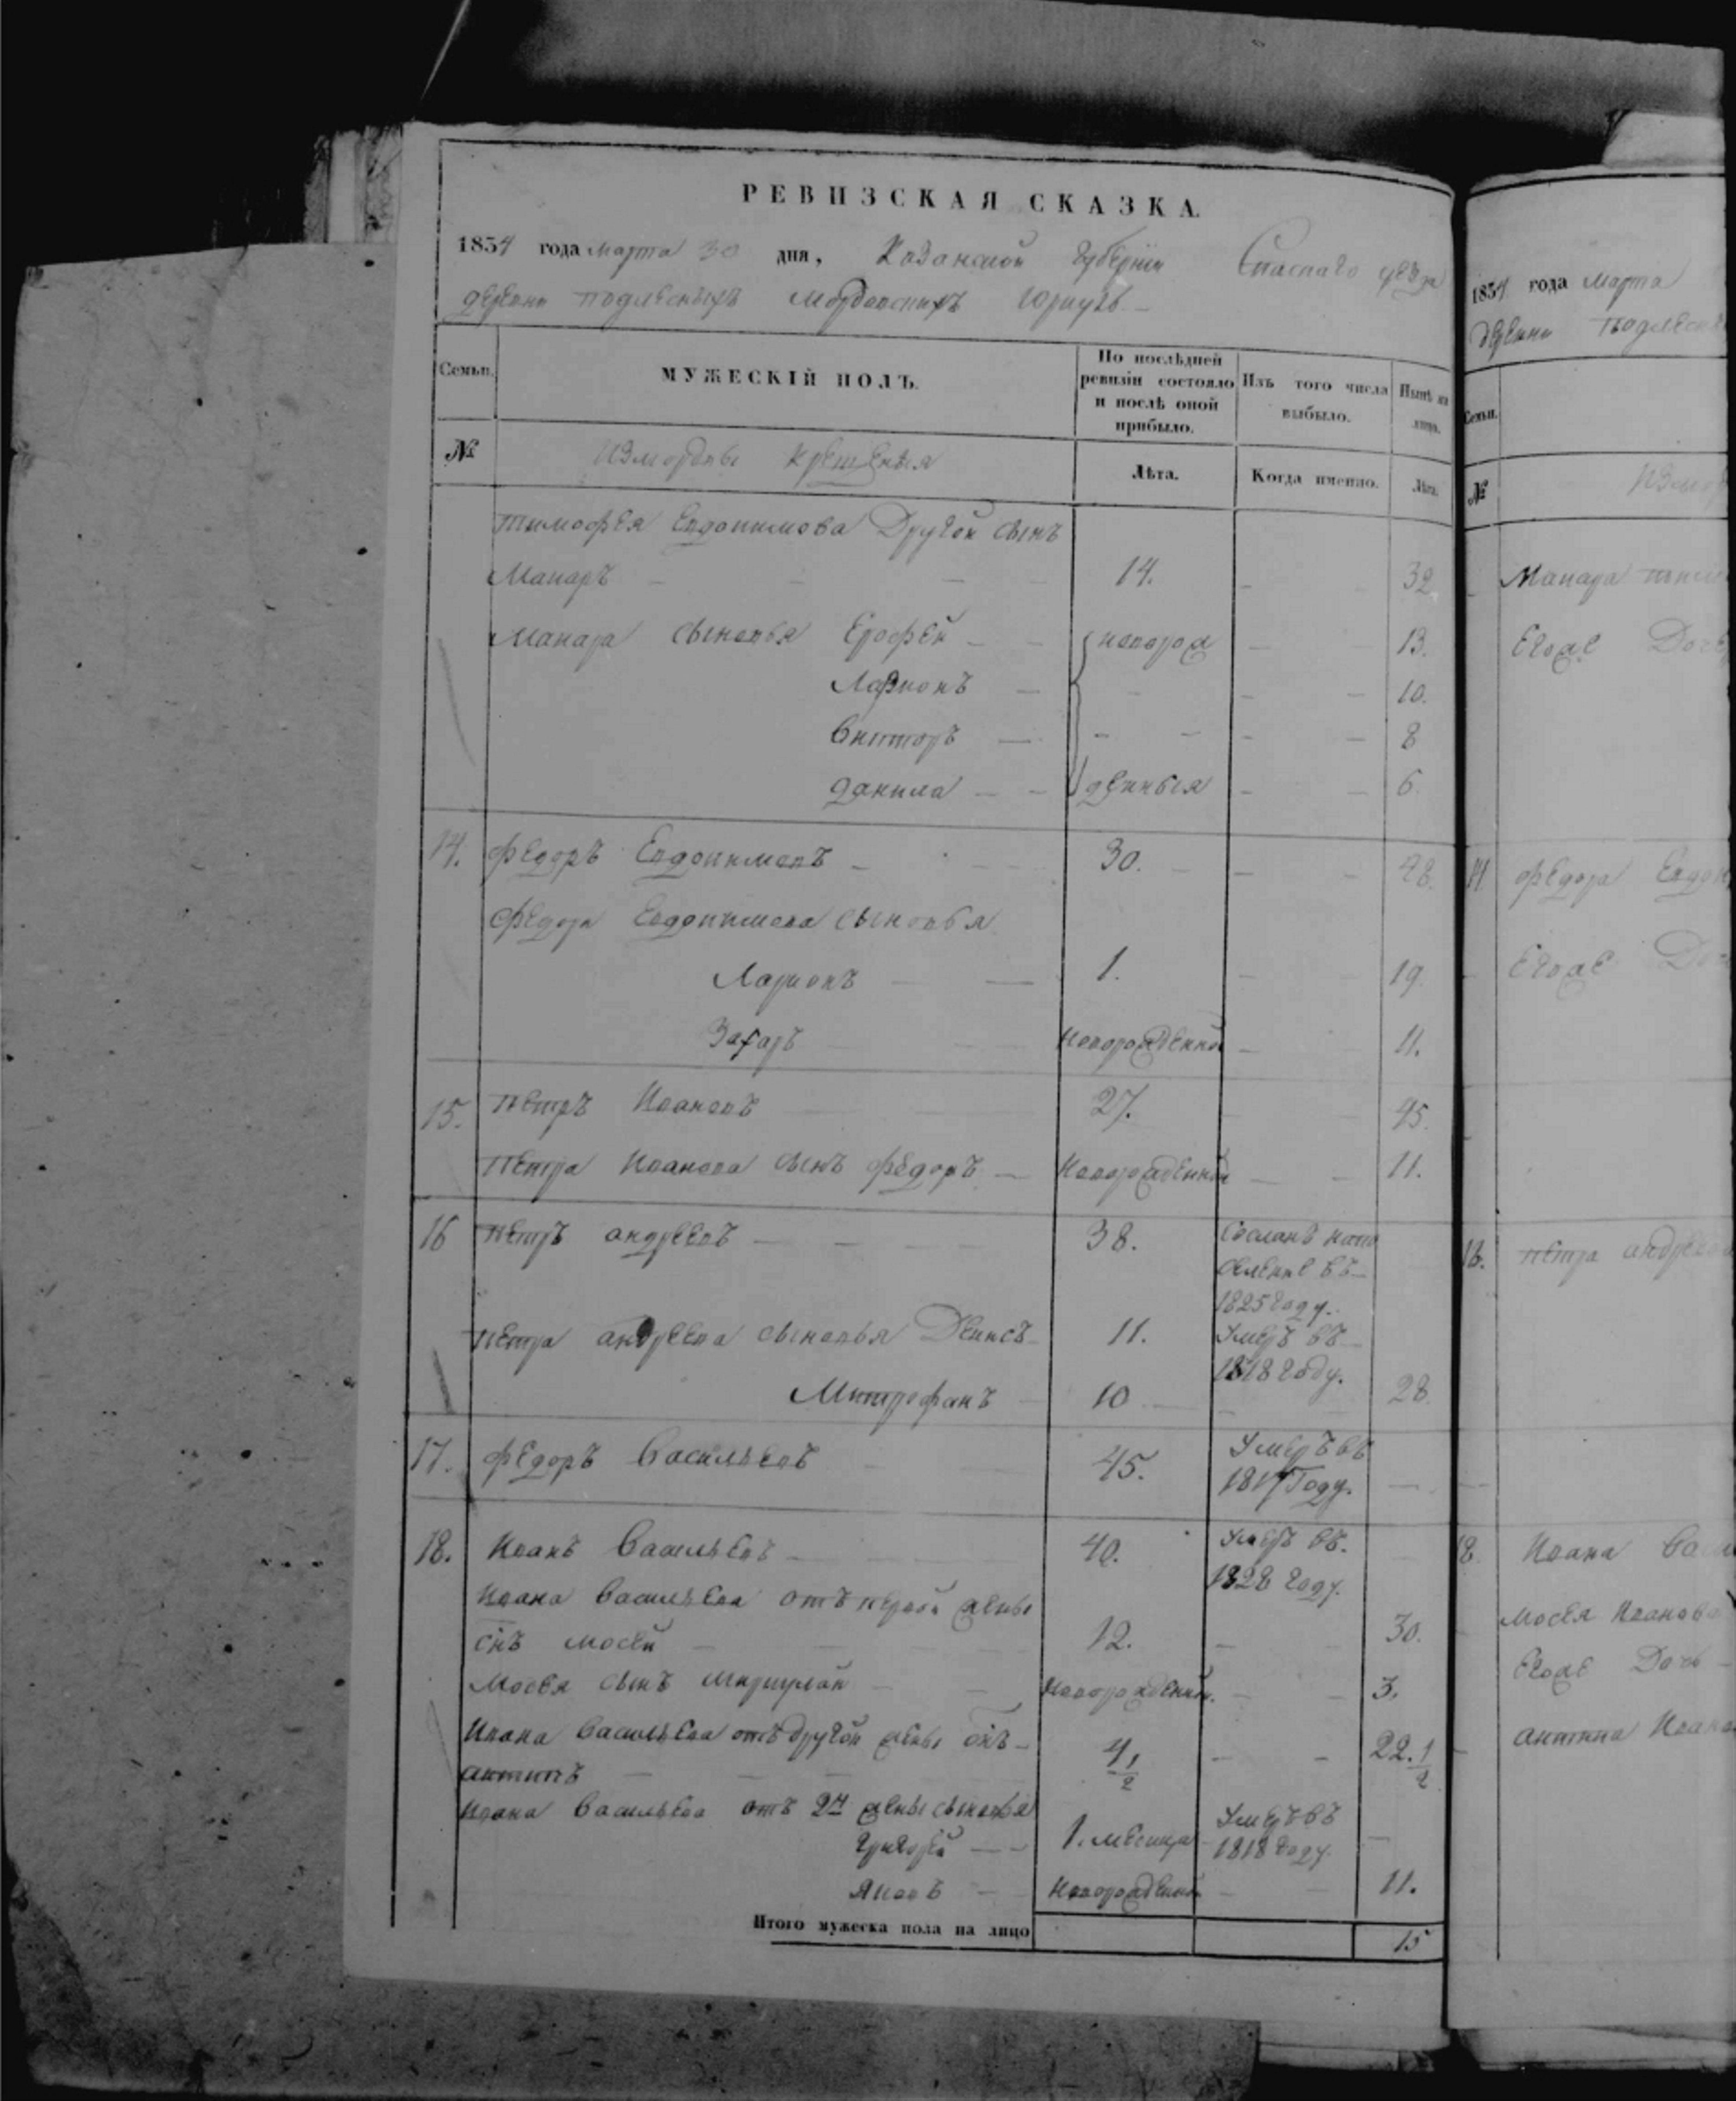 РЕВИЗСКАЯ СКАЗКА.
1834 года марта 30 дня, Казанской губернии Спаскаго уезда
деревни подлесныхъ Мордовскихъ Юркулъ.
Семьи.
МУЖЕСКІЙ ПОЛЪ.
По послѣдней ревизіи состояло и послѣ оной прибыло.
Изъ того числа выбыло.
Нынѣ на лицо.
№
Измордвы крещеныя
Лѣта.
Когда именно.
Лѣта.
тимофея Евдокимова Другой сынъ
Макаръ - 14. - 32
Макара сыновья Ерофей - новорож - 13.
Ларионъ - 10.
Викторъ - 8
данила - денныя - 6.
14. федоръ Евдокимовъ - 30. - 48.
федора Евдокимова сыновья
Ларионъ - 1. - 19.
Захаръ - новорожденной - 11.
15. петръ Ивановъ - 27. - 45.
петра Иванова сынъ федоръ - Новорожденной - 11.
16 петръ андреевъ - 38. Сосланъ напо
селение въ
1825 году.
петра андреева сыновья Денисъ - 11. Умеръ въ
1818 году.
Митрофанъ - 10 - 28.
17. федоръ Васильевъ - 45. Умеръ въ
1817 Году.
18. Иванъ Васильевъ - 40. Умеръ въ.
1828 году.
Ивана Васильева отъ первой жены
снъ мосей - 12. - 30.
Мосея сынъ меркулай - Новорожденной. - 3.
Ивана Васильева отъ другой жены снъ -
антипъ - 4 1/2 - 22. 1/2
Ивана Васильева отъ 2й жены сыновья
григорей - 1. месяца Умеръ въ
1818 году.
Яковъ - новорожденной - 11.
Итого мужеска пола на лицо 15
1834 года Марта
деревни подлесн
Семьи.
№
Измор
Макара тим
Егоже Доче
14 федора Евдок
Егоже До
16. петра андреева
18. Ивана Васи
Мосея Иванова
Егоже Дочь -
антипа Ивано